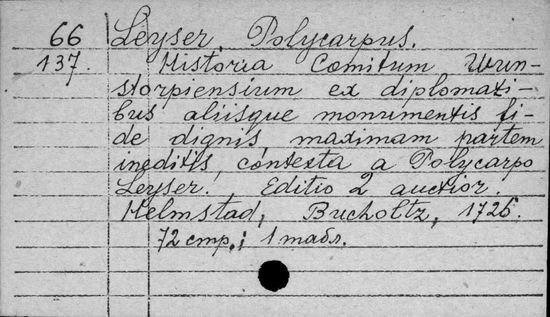 66 Leyser, Polycarpus.
137. Historia Comitum Wun-
storpiensium ex diplomati-
bus aliisque monumentis fi-
de dignis, maximam partem
ineditis, contexta a Polycarpo
Leyser. Editio 2 auctior.
Helmstad, Bucholtz, 1726.
72 стр.; 1 табл.